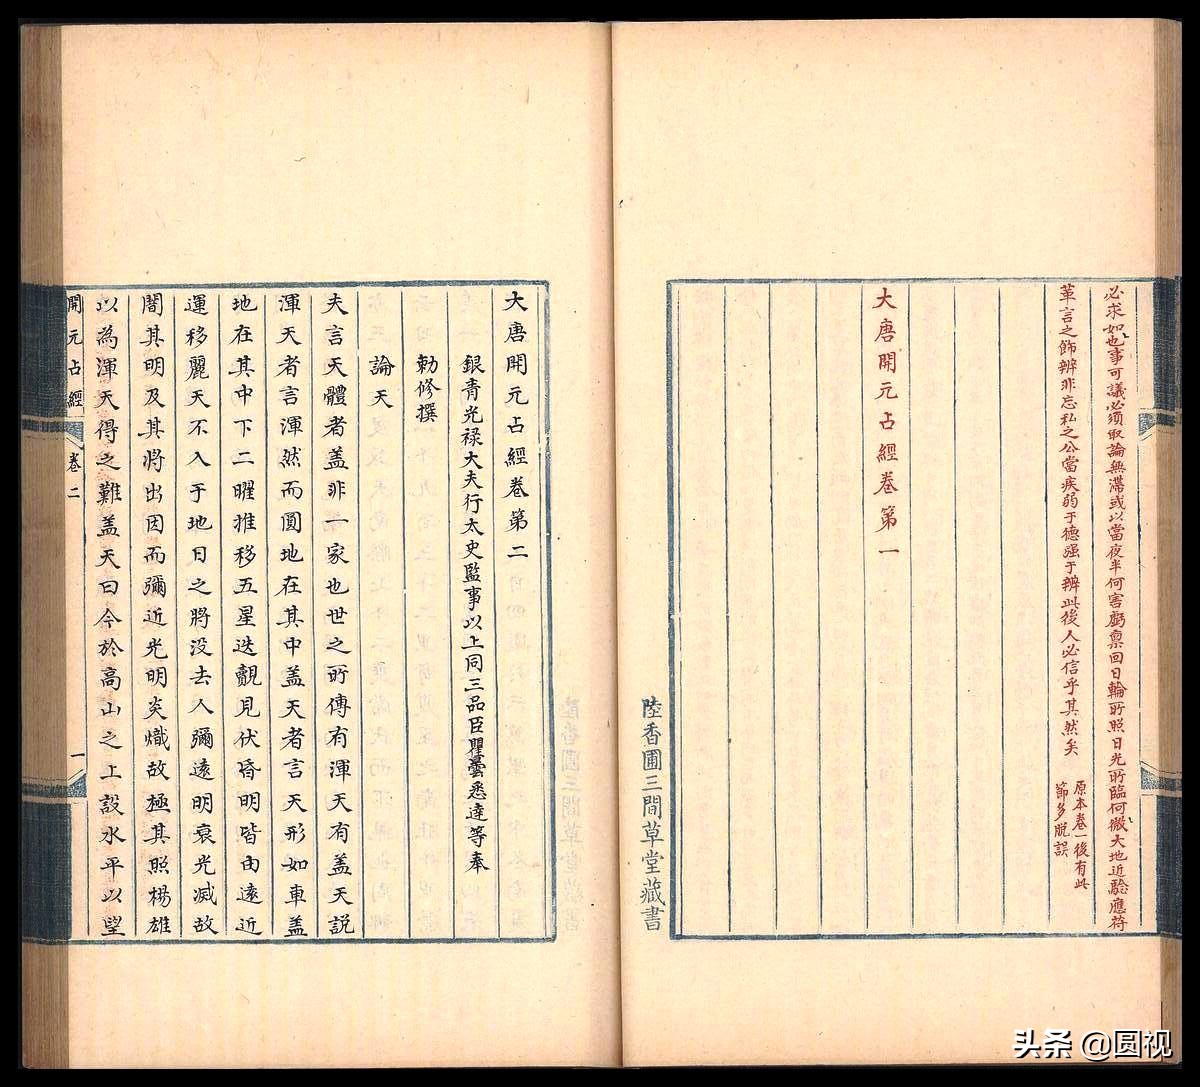 必求如也事可議必須取論無滯或以當夜半何害虧稟回日輪所照日光所臨何微大地近驗應符
革言之飾辨非忘私之公當疾弱于德强于辨此後人必信乎其然矣
原本卷一後有此
節多脫誤
大唐開元占經卷第一
陸香圃三間草堂藏書
大唐開元占經卷第二
銀青光祿大夫行太史監事以上同三品臣瞿曇悉達等奉
勅修撰
論天
夫言天體者盖非一家也世之所傳有渾天有盖天說
渾天者言渾然而圓地在其中盖天者言天形如車盖
地在其中下二曜推移五星迭覿見伏昏明皆由遠近
運移麗天不入于地日之將沒去人彌遠明衰光减故
闇其明及其將出因而彌近光明炎熾故極其照楊雄
以為渾天得之難盖天曰今於高山之上設水平以望
開元占經
卷二
一
头条 @圆视